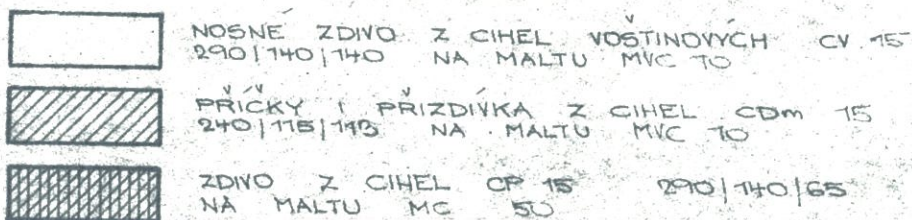 NOSNÉ ZDIVO Z CIHEL VOŠTINOVÝCH CV 15
290/140/140 NA MALTU MVC 10
PŘÍČKY I PŘIZDÍVKA Z CIHEL CDm 15
240/115/113 NA MALTU MVC 10
ZDIVO Z CIHEL CP 15 290/140/65
NA MALTU MC 50